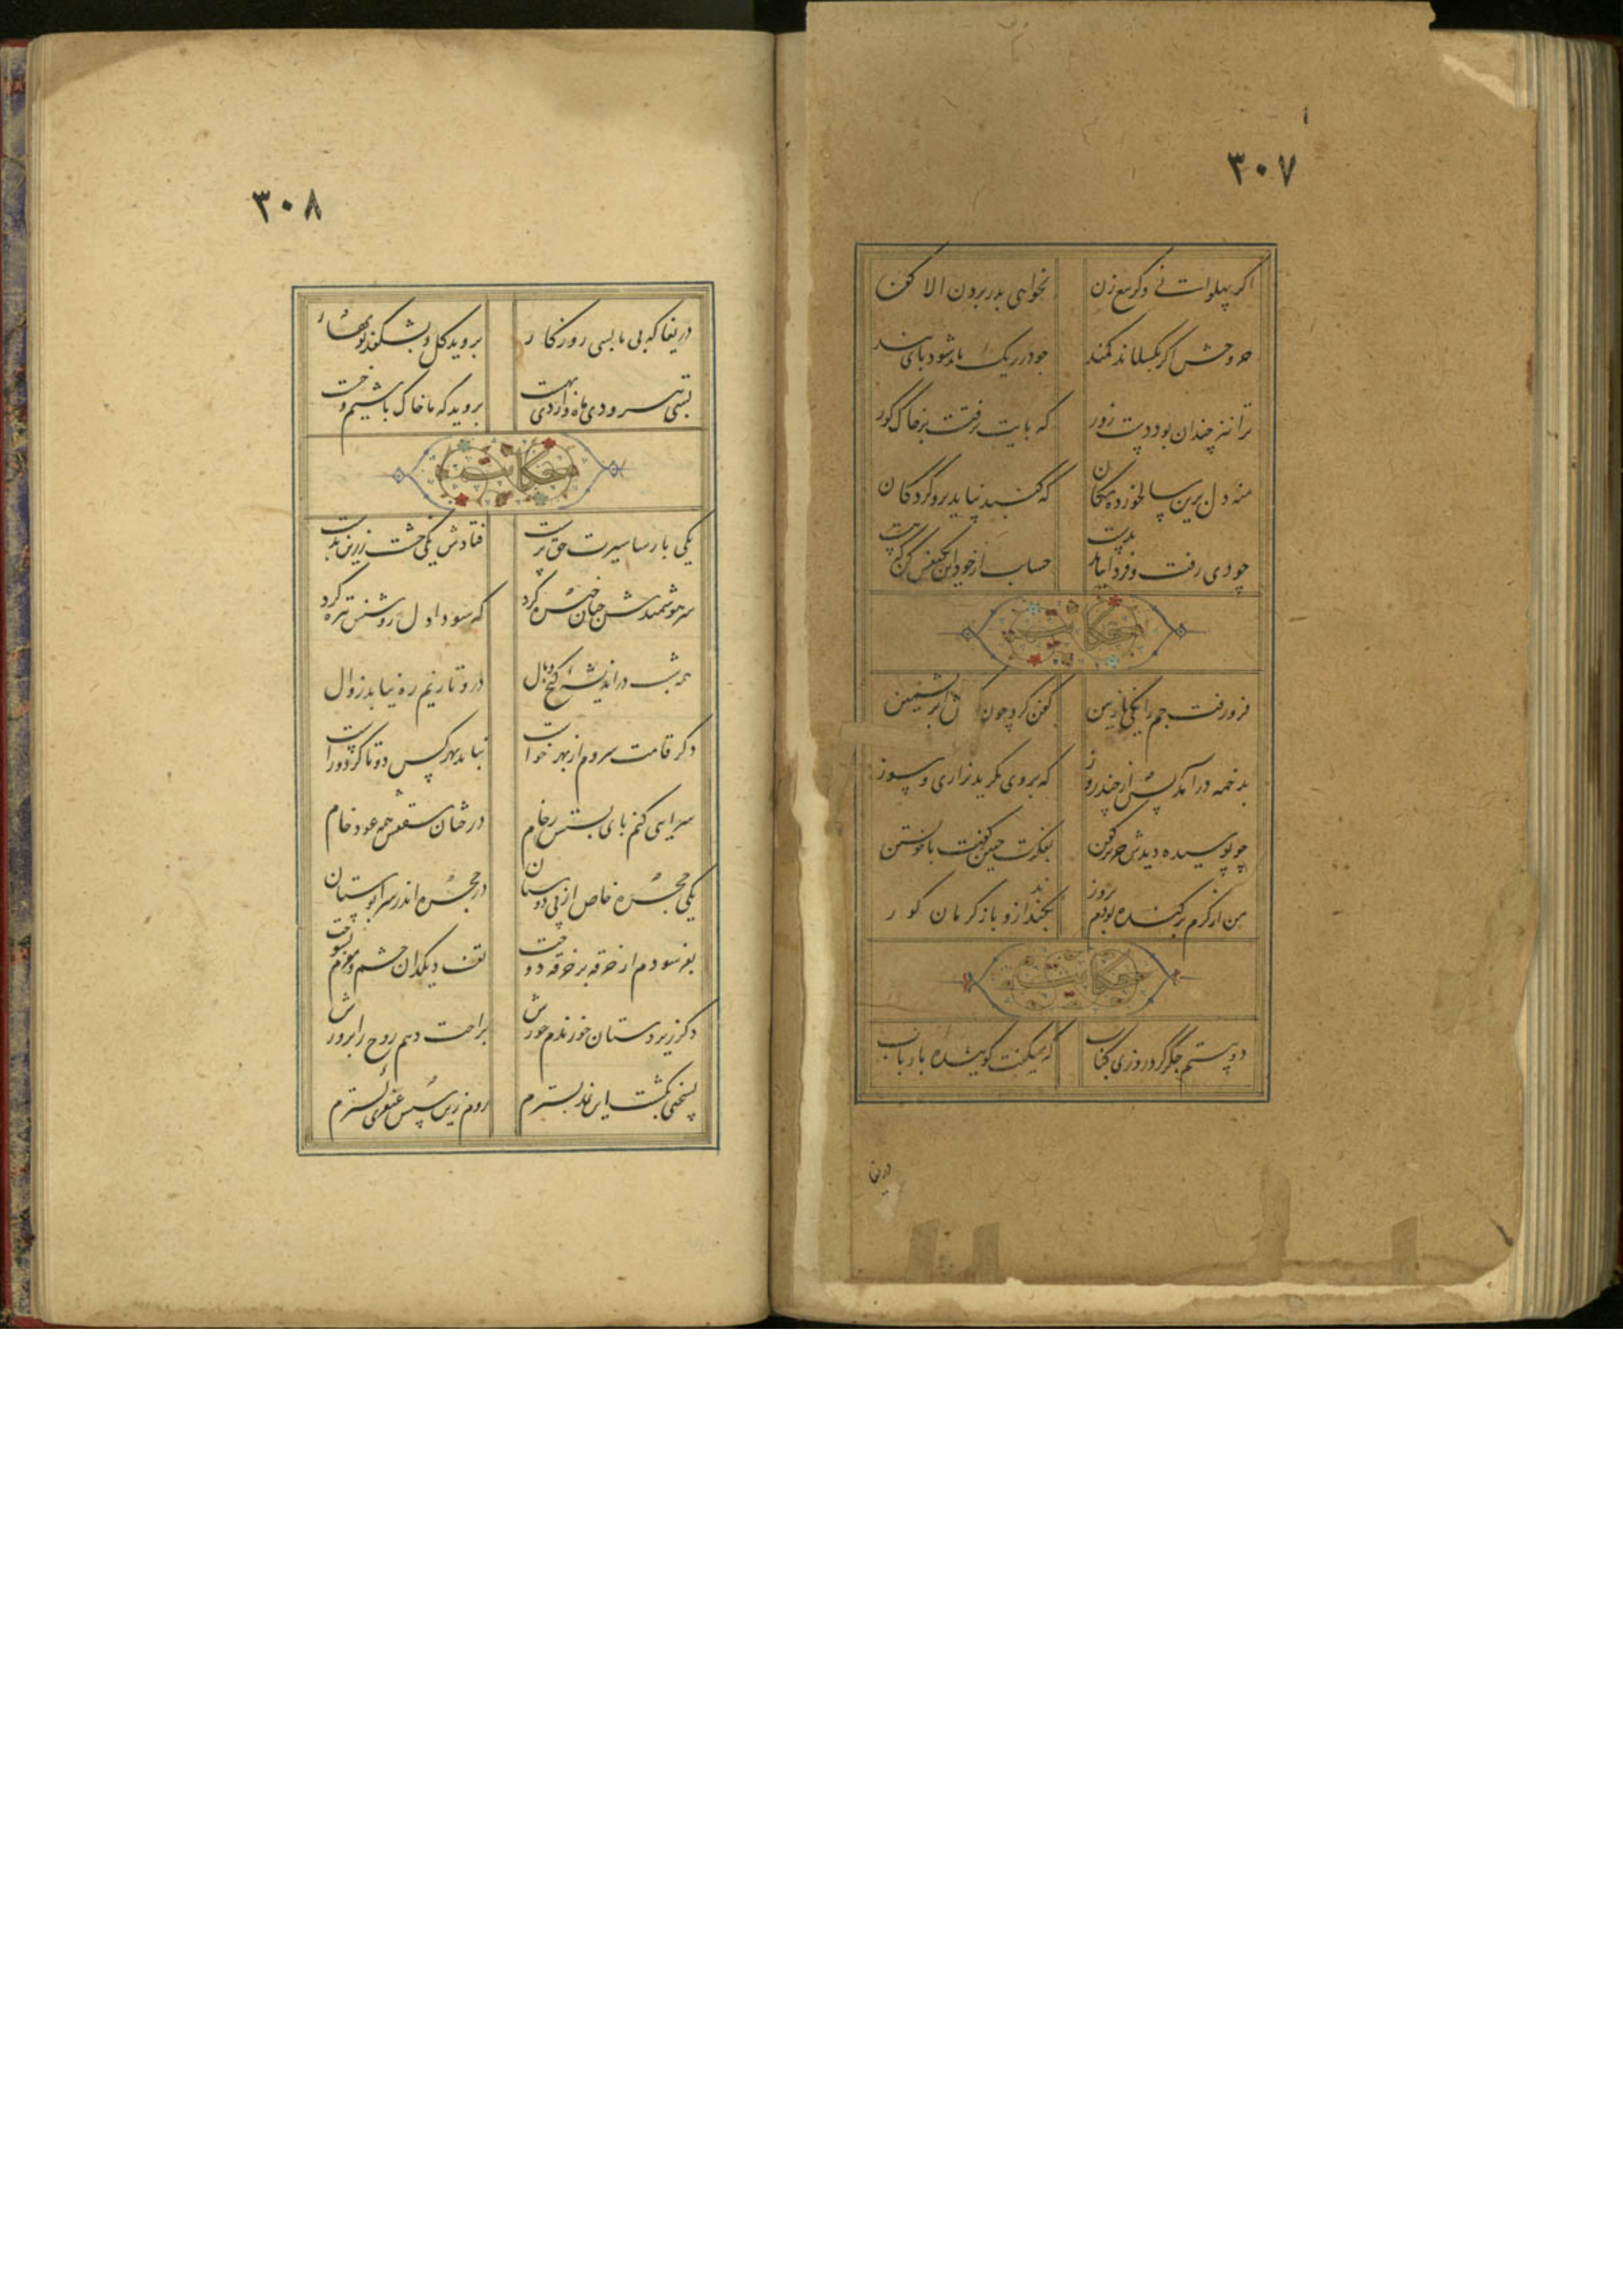 ۳۰۷
اگر پهلوانی و گر تیغ زن نخواهی بدر بردن الا کفن
چو وحش اگر بگسلاند کمند چو در ریک ماند شود پای بند
ترا نیز چندان بود دست زور که پایت نرفتست بر خاک گور
منه دل برین سالخورده مکان که گنبد نپاید برو گردکان
چو دی رفت و فردا نیاید بدست حساب از خود این یکنفس کن که هست
حکایت
فرو رفت جم را یکی نازنین کفن کرد چون کرمش ابریشمین
بدخمه درآمد پس از چند روز که بر وی بگرید بزاری و سوز
چو پوسیده دیدش حریر کفن بفکرت چنین گفت با خویشتن
من از کرم برکنده بودم بزور بکندند ازو باز کرمان گور
حکایت
دو بیتم جگر کرد روزی کباب که میگفت گوینده با رباب
دریغا
۳۰۸
دریغا که بی ما بسی روزگار بروید گل و بشکفد نوبهار
بسی تیر و دی ماه و اردیبهشت بروید که ما خاک باشیم و خشت
حکایت
یکی پارسا سیرت حق پرست فتادش یکی خشت زرین بدست
سر هوشمندش چنان خیره کرد که سودا دل روشنش تیره کرد
همه شب در اندیشه کین گنج و مال درو تا زیم ره نیابد زوال
دگر قامت سروم از بهر خواست نباید بهر کس دوتا کرد و راست
سرایی کنم پای بستش رخام درختان سقفش همه عود خام
یکی حجره خاص از پی دوستان در حجره اندر سرابوستان
بفرسودم از خرقه بر خرقه دوخت تف دیکدان چشم و مغزم بسوخت
دگر زیردستان خورندم خورش براحت دهم روح را پرورش
بسختی بکشت این نمد بسترم روم زین سپس عبقری گسترم